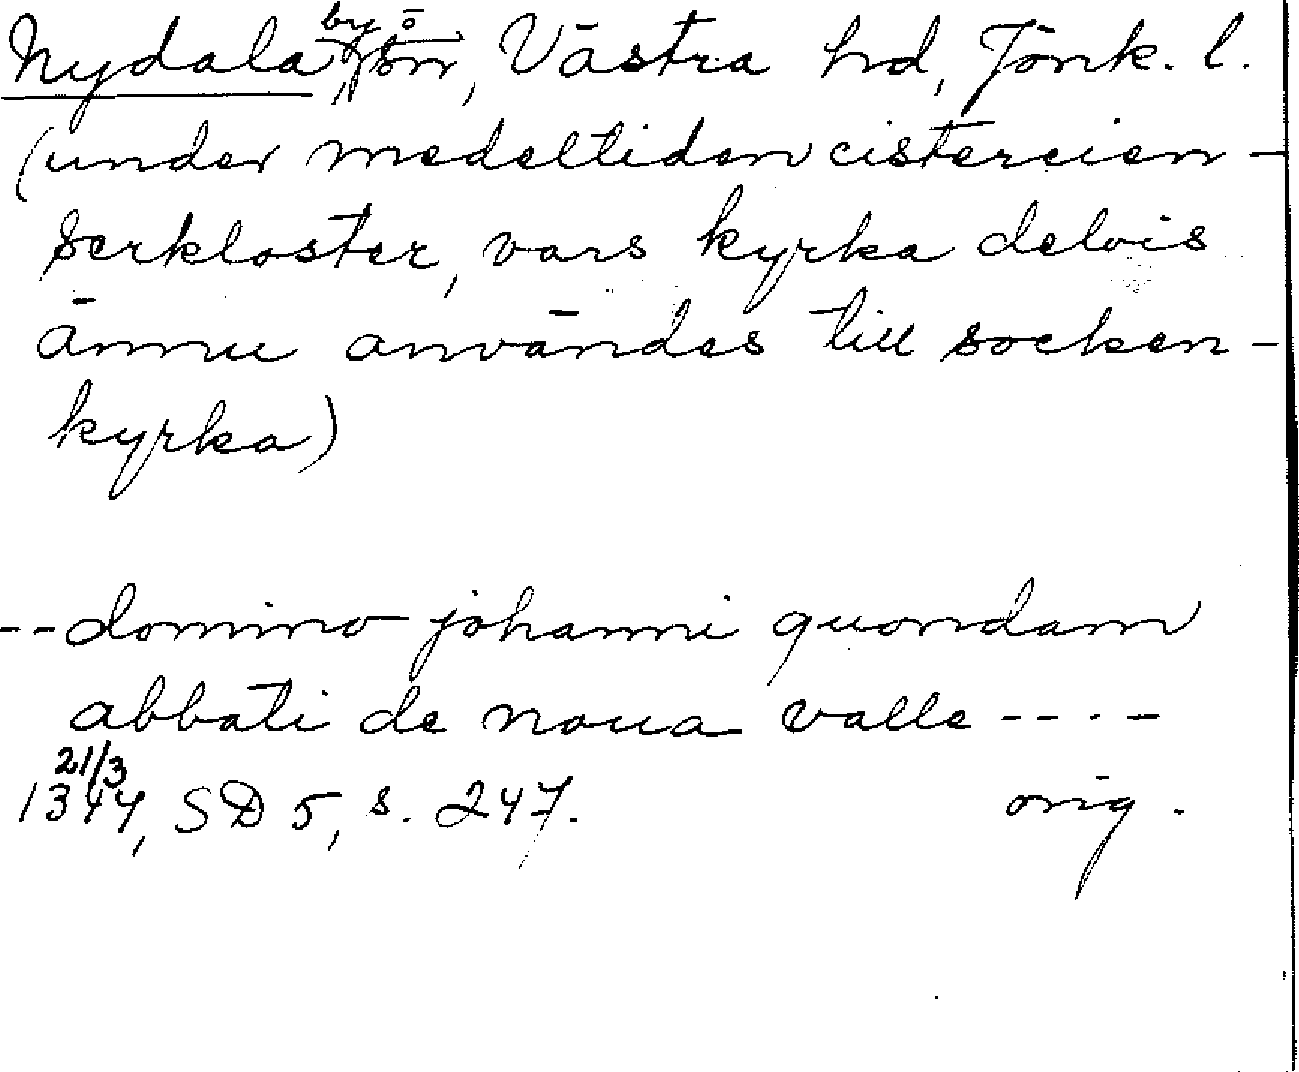 Nydala by o sn, Västra hd, Jönk. l.
(under medeltiden cistercien-
serkloster, vars kyrka delvis
ännu användes till socken-
kyrka)
-- domino johanni quondam
abbati de noua valle ----
21/3
1344, SD 5, s. 247. orig.